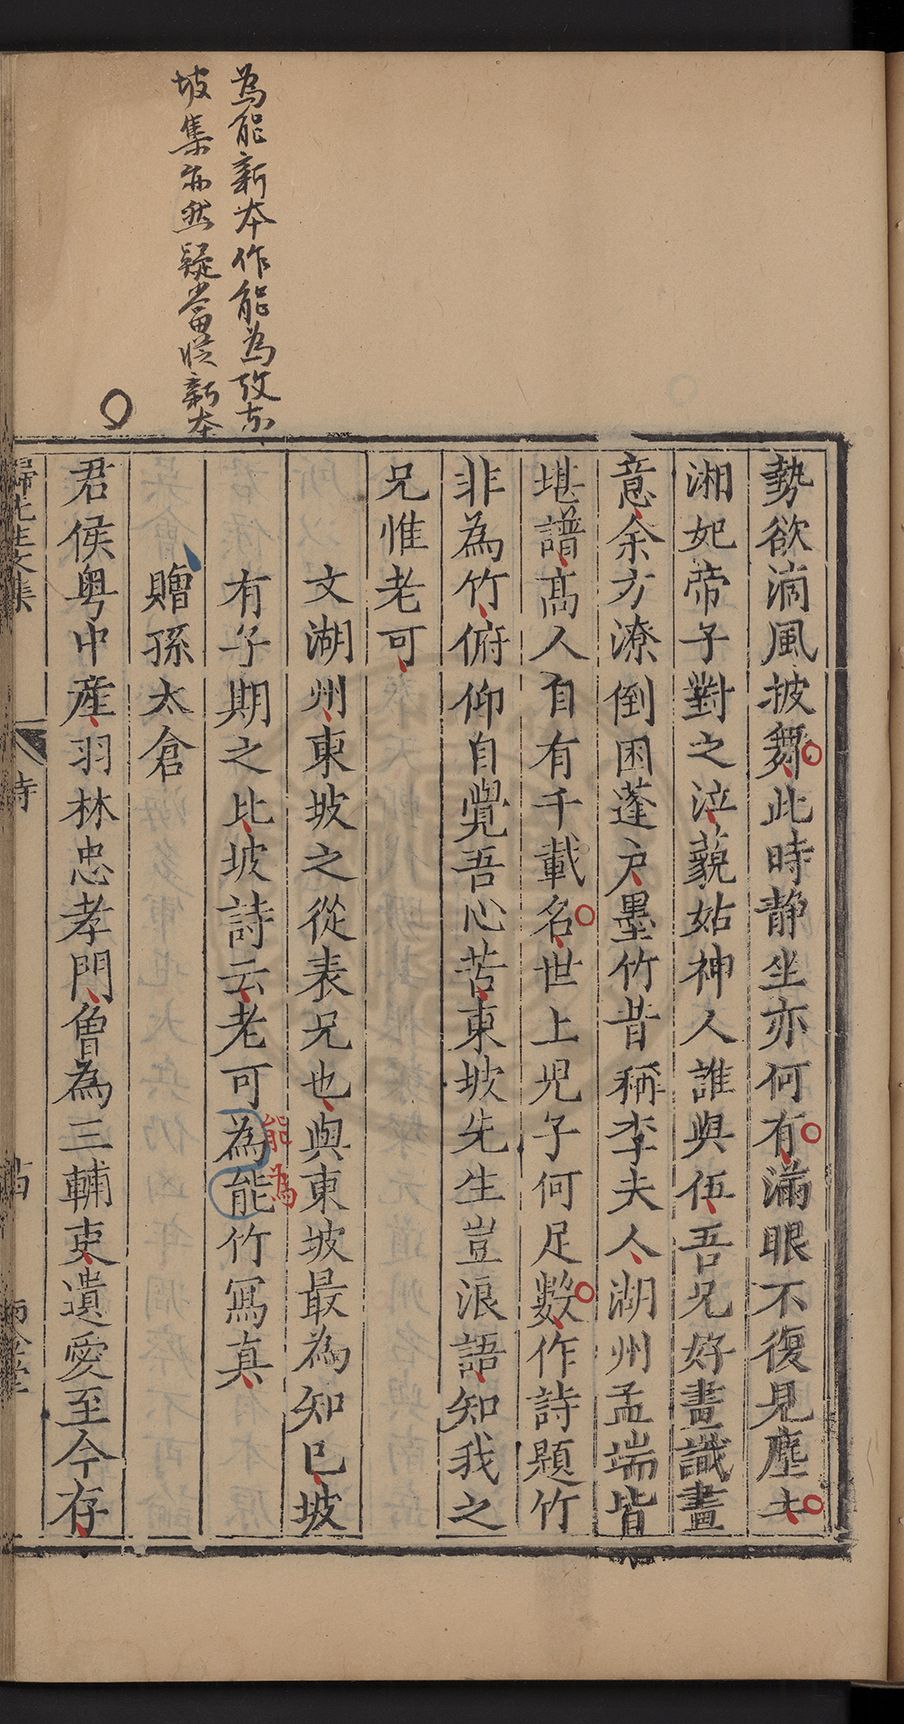 為能新本作能為攷東
坡集亦然疑當從新本
勢欲滴風披舞此時靜坐亦何有滿眼不復見塵土
湘妃帝子對之泣藐姑神人誰與伍吾兄好畫識畫
意余方潦倒困蓬戶墨竹昔稱李夫人湖州孟端皆
堪譜髙人自有千載名世上兒子何足數作詩題竹
非為竹俯仰自覺吾心苦東坡先生豈浪語知我之
兄惟老可
文湖州東坡之從表兄也與東坡最為知已坡
有子期之比坡詩云老可為能竹寫真
能為
贈孫太倉
君侯粤中産羽林忠孝門魯為三輔吏遺愛至今存
歸先生文集
詩